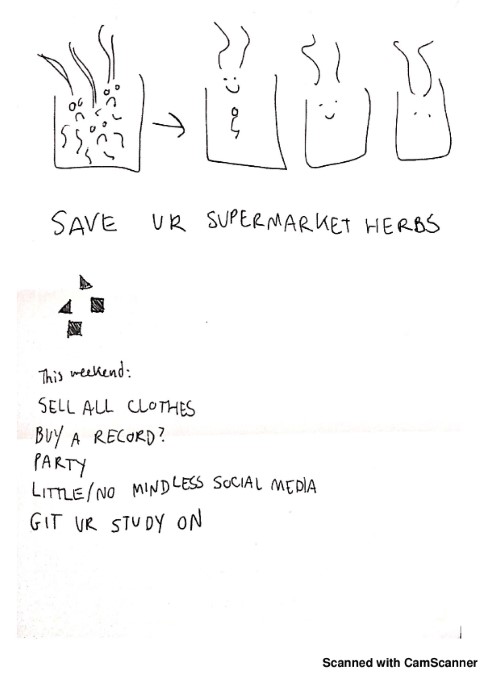 SAVE UR SUPERMARKET HERBS
This weekend:
SELL ALL CLOTHES
BUY A RECORD?
PARTY
LITTLE/NO MINDLESS SOCIAL MEDIA
GIT UR STUDY ON
Scanned with CamScanner